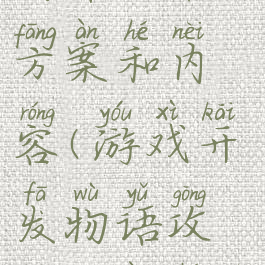 fāng àn hé nèi
方案和内
róng yóu xì kāi
容(游戏开
fā wù yǔ gōng
发物语攻